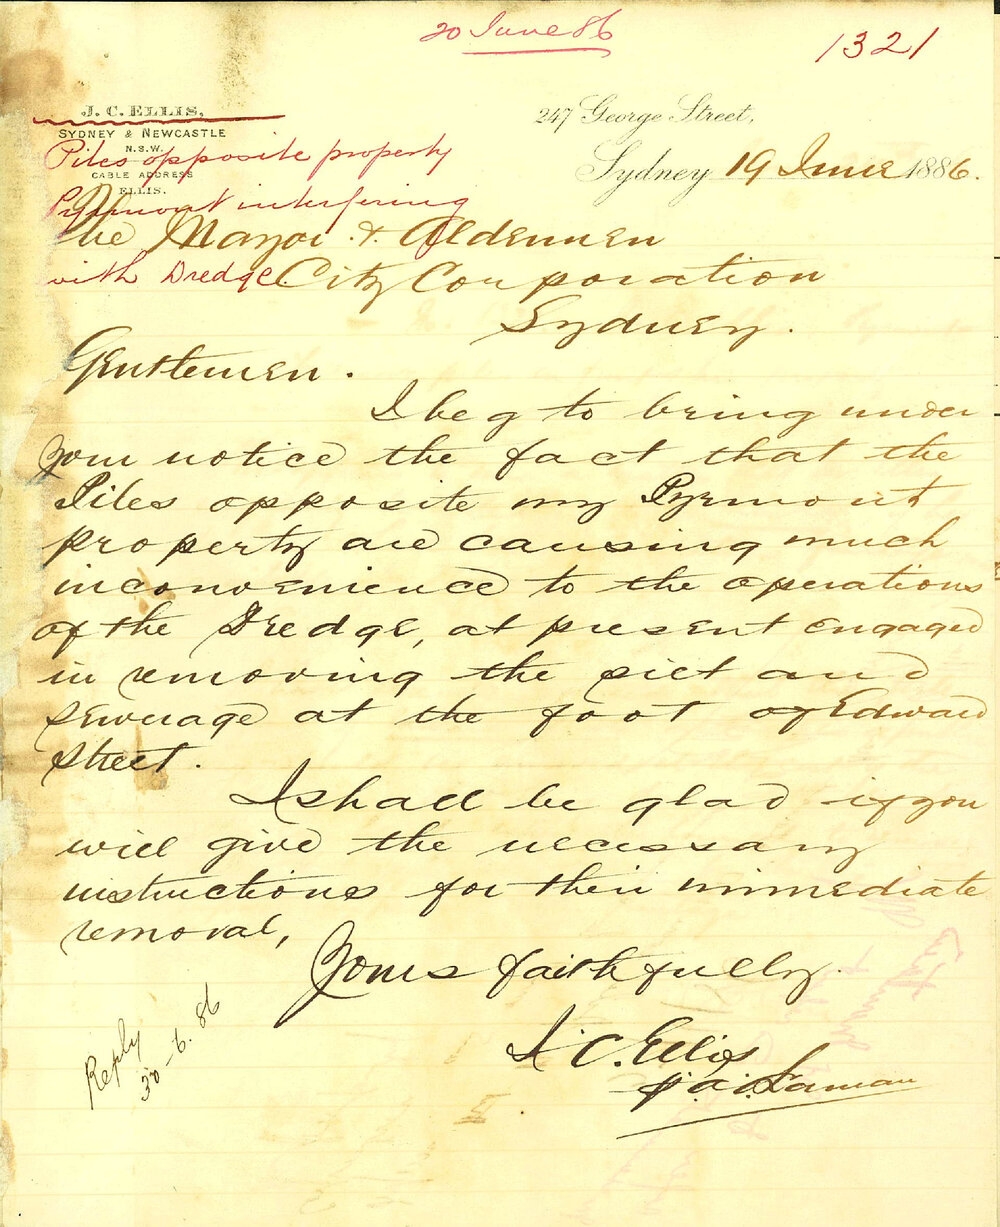 20 June 86
1321
J. C. ELLIS,
SYDNEY & NEWCASTLE
N.S.W.
CABLE ADDRESS
ELLIS.
Piles opposite property
Pyrmont interfering
with Dredge.
247 George Street,
Sydney 19 June 1886.
The Mayor & Aldermen
City Corporation
Sydney.
Gentlemen.
I beg to bring under
your notice the fact that the
Piles opposite my Pyrmont
property are causing much
inconvenience to the operations
of the Dredge, at present engaged
in removing the silt and
sewerage at the foot of Edward
Street.
I shall be glad if you
will give the necessary
instructions for their immediate
removal,
Yours faithfully.
J. C. Ellis
Reply
30-6.86